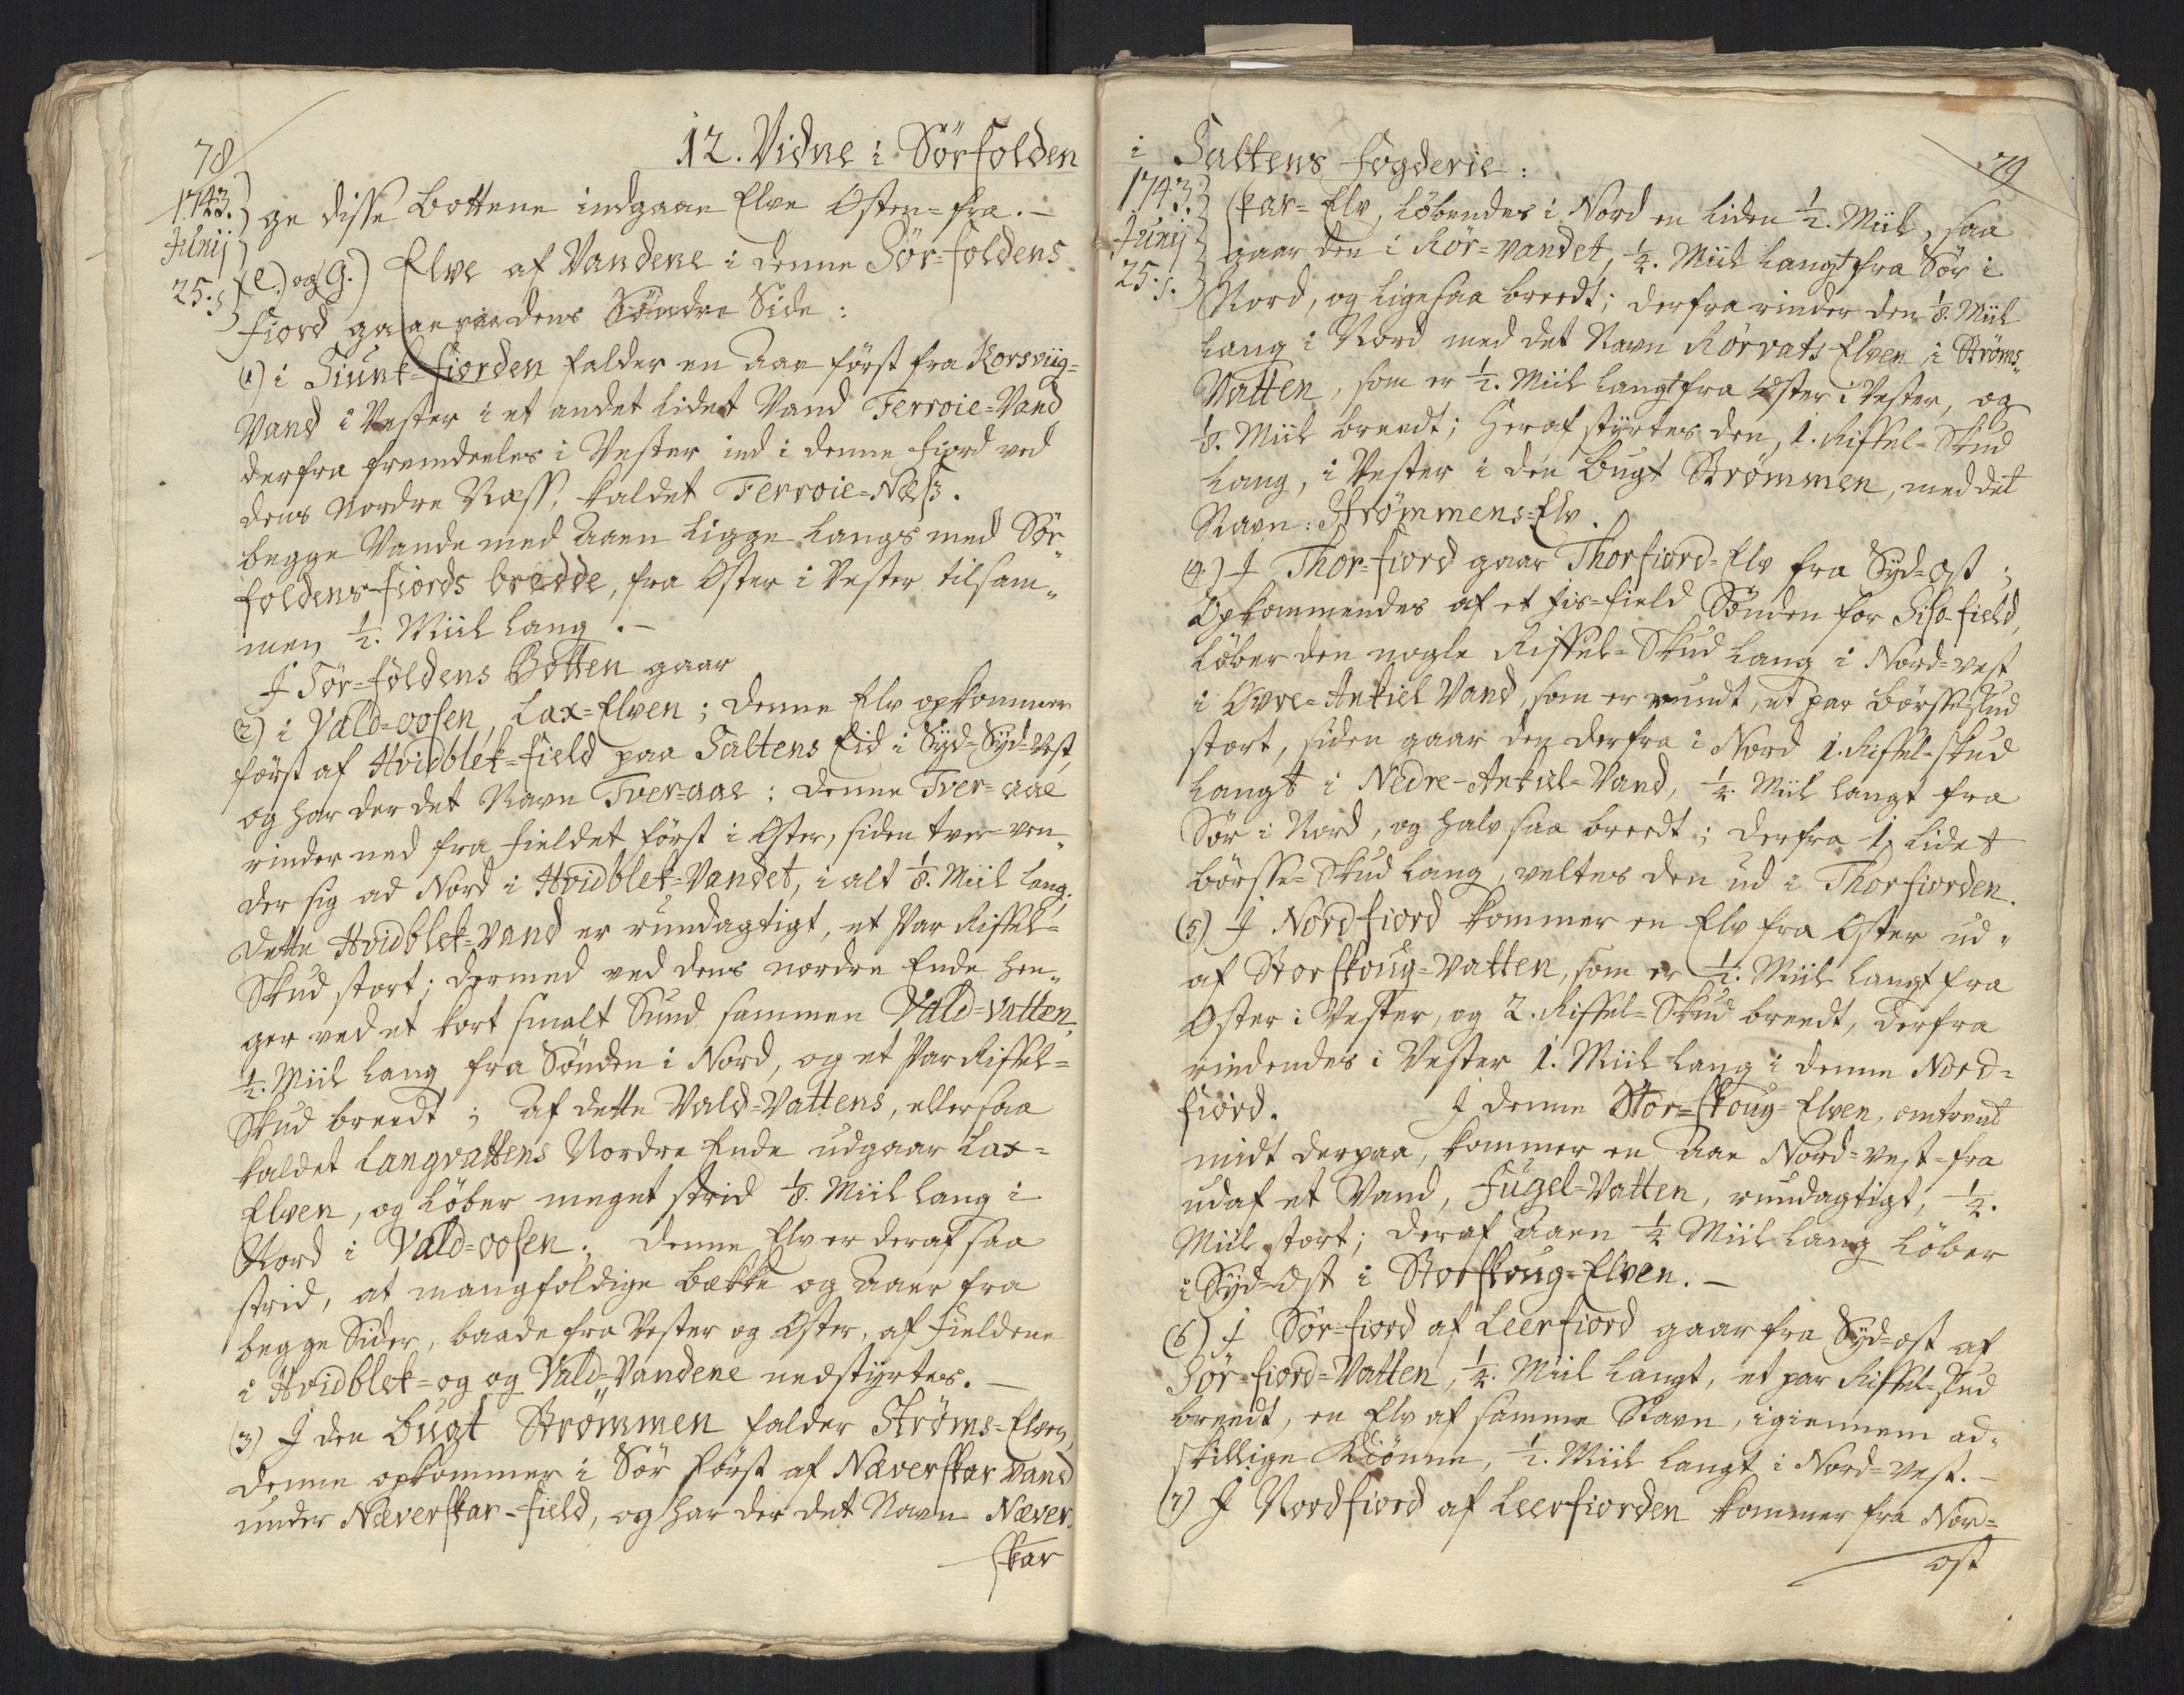 78
12. Vidne i Sörfolden
1743.
Junij
25. s.
ge disse Bottene indgaae Elve Osten-fra. –
(e.) og G.) Elve af Vandene i denne Sör-foldens
fiord gaaer paa dens Söndre Side:
(1) i Siunk-fiorden falder en Aae först fra Korsviig-
Vand i Vester i et andet lidet Vand Ferroie-Vand
derfra fremdeeles i Vester ind i denne fiord ved
dens Nordre Næss, kaldet Ferroie-Næss.
begge Vande med Aaen ligge langs med Sör-
foldens-fiords bredde, fra Oster i Vester tilsam„
men ½. Miil lang. –
I Sör-foldens Botten gaar
(2) i Vald-oosen, Lax-Elven; denne Elv opkommer
först af Hvidblek-field paa Saltens Eid i Syd-Syd-Vest,
og har der det Navn Tver-aae: denne Tver-aae
rinder ned fra fieldet först i Oster, siden tver-ven„
der sig ad Nord i Hvidblek-Vandet, i alt ⅛. Miil lang.
Dette Hvidblek-Vand er rundagtigt, et Par Riffel-
Skud stort; dermed ved dens nordre Ende hen„
ger ved et kort smalt Sund sammen Vald-Vatten,
½. Miil lang fra Sönden i Nord, og et Par Riffel-
Skud breedt; af dette Vald-Vattens, eller saa
kaldet Langvattens Nordre Ende udgaar Lax-
Elven, og löber meget strid ⅛. Miil lang i
Nord i Vald-oosen; denne Elv er deraf saa
strid, at mangfoldige bække og Aaer fra
begge Sider, baade fra Vester og Oster, af fieldene
i Hvidblek- og og Vald-Vandene nedstyrtes. –
(3) I den bugt Strömmen falder Ströms-Elven,
denne opkommer i Sör först af Næverskar Vand
under Næverskar-field, og har der det Navn Næver„
skar
i Saltens fogderie:
79
1743.
Junij
25. s.
skar-Elv, löbendes i Nord en liden ½. Miil, saa
gaar den i Rör-Vandet, ¼. Miil langt fra Sör i
Nord, og ligesaa breedt; derfra rinder den ⅛. Miil
lang i Nord med det Navn Rörvats-Elven i Ströms„
Vatten, som er ½. Miil langt fra Oster i Vester, og
⅛. Miil breedt; Heraf styrtes den, 1. Riffel-Skud
lang, i Vester i den Bugt Strömmen, med det
Navn: Strömmens-Elv.
(4) I Thor-fiord gaar Thorfiord-Elv fra Syd-ost;
Opkommendes af et Jis-field Sönden for Siso-field,
löber den nogle Riffel-Skud lang i Nord-vest
i Ovre-Ankiel Vand, som er rundt, et par börsse-skud
stort, siden gaar den derfra i Nord 1. Riffel-skud
langt i Nedre-Ankiel-Vand, ¼. Miil langt fra
Sör i Nord, og halv saa breedt; derfra 1. lidet
börsse-Skud lang, veltes den ud i Thorfiorden.
(5) I Nordfiord kommer en Elv fra Oster ud„
af Storskoug-Vatten, som er ½. Miil langt fra
Oster i Vester, og 2. Riffel-Skud breedt, derfra
rindendes i Vester 1. Miil lang i denne Nord-
fiord. I denne Stor-skoug-Elven, omtrent
midt derpaa, kommer en Aae Nord-vest-fra
udaf et Vand, Fugel-Vatten, rundagtigt, ¼.
Miil stort; deraf Aaen ¼ Miil lang löber
i Syd-Ost i Storskoug-Elven. –
(6) I Sör-fiord af Leerfiord gaar fra Syd-ost af
Sör-fiord-Vatten, ¼. Miil langt, et par Riffel-skud
breedt, en Elv af samme Navn, igiennem ad„
skillige Kiönne, ½. Miil langt i Nord-vest. –
(7) I Nordfiord af Leerfiorden kommer fra Nor-
ost